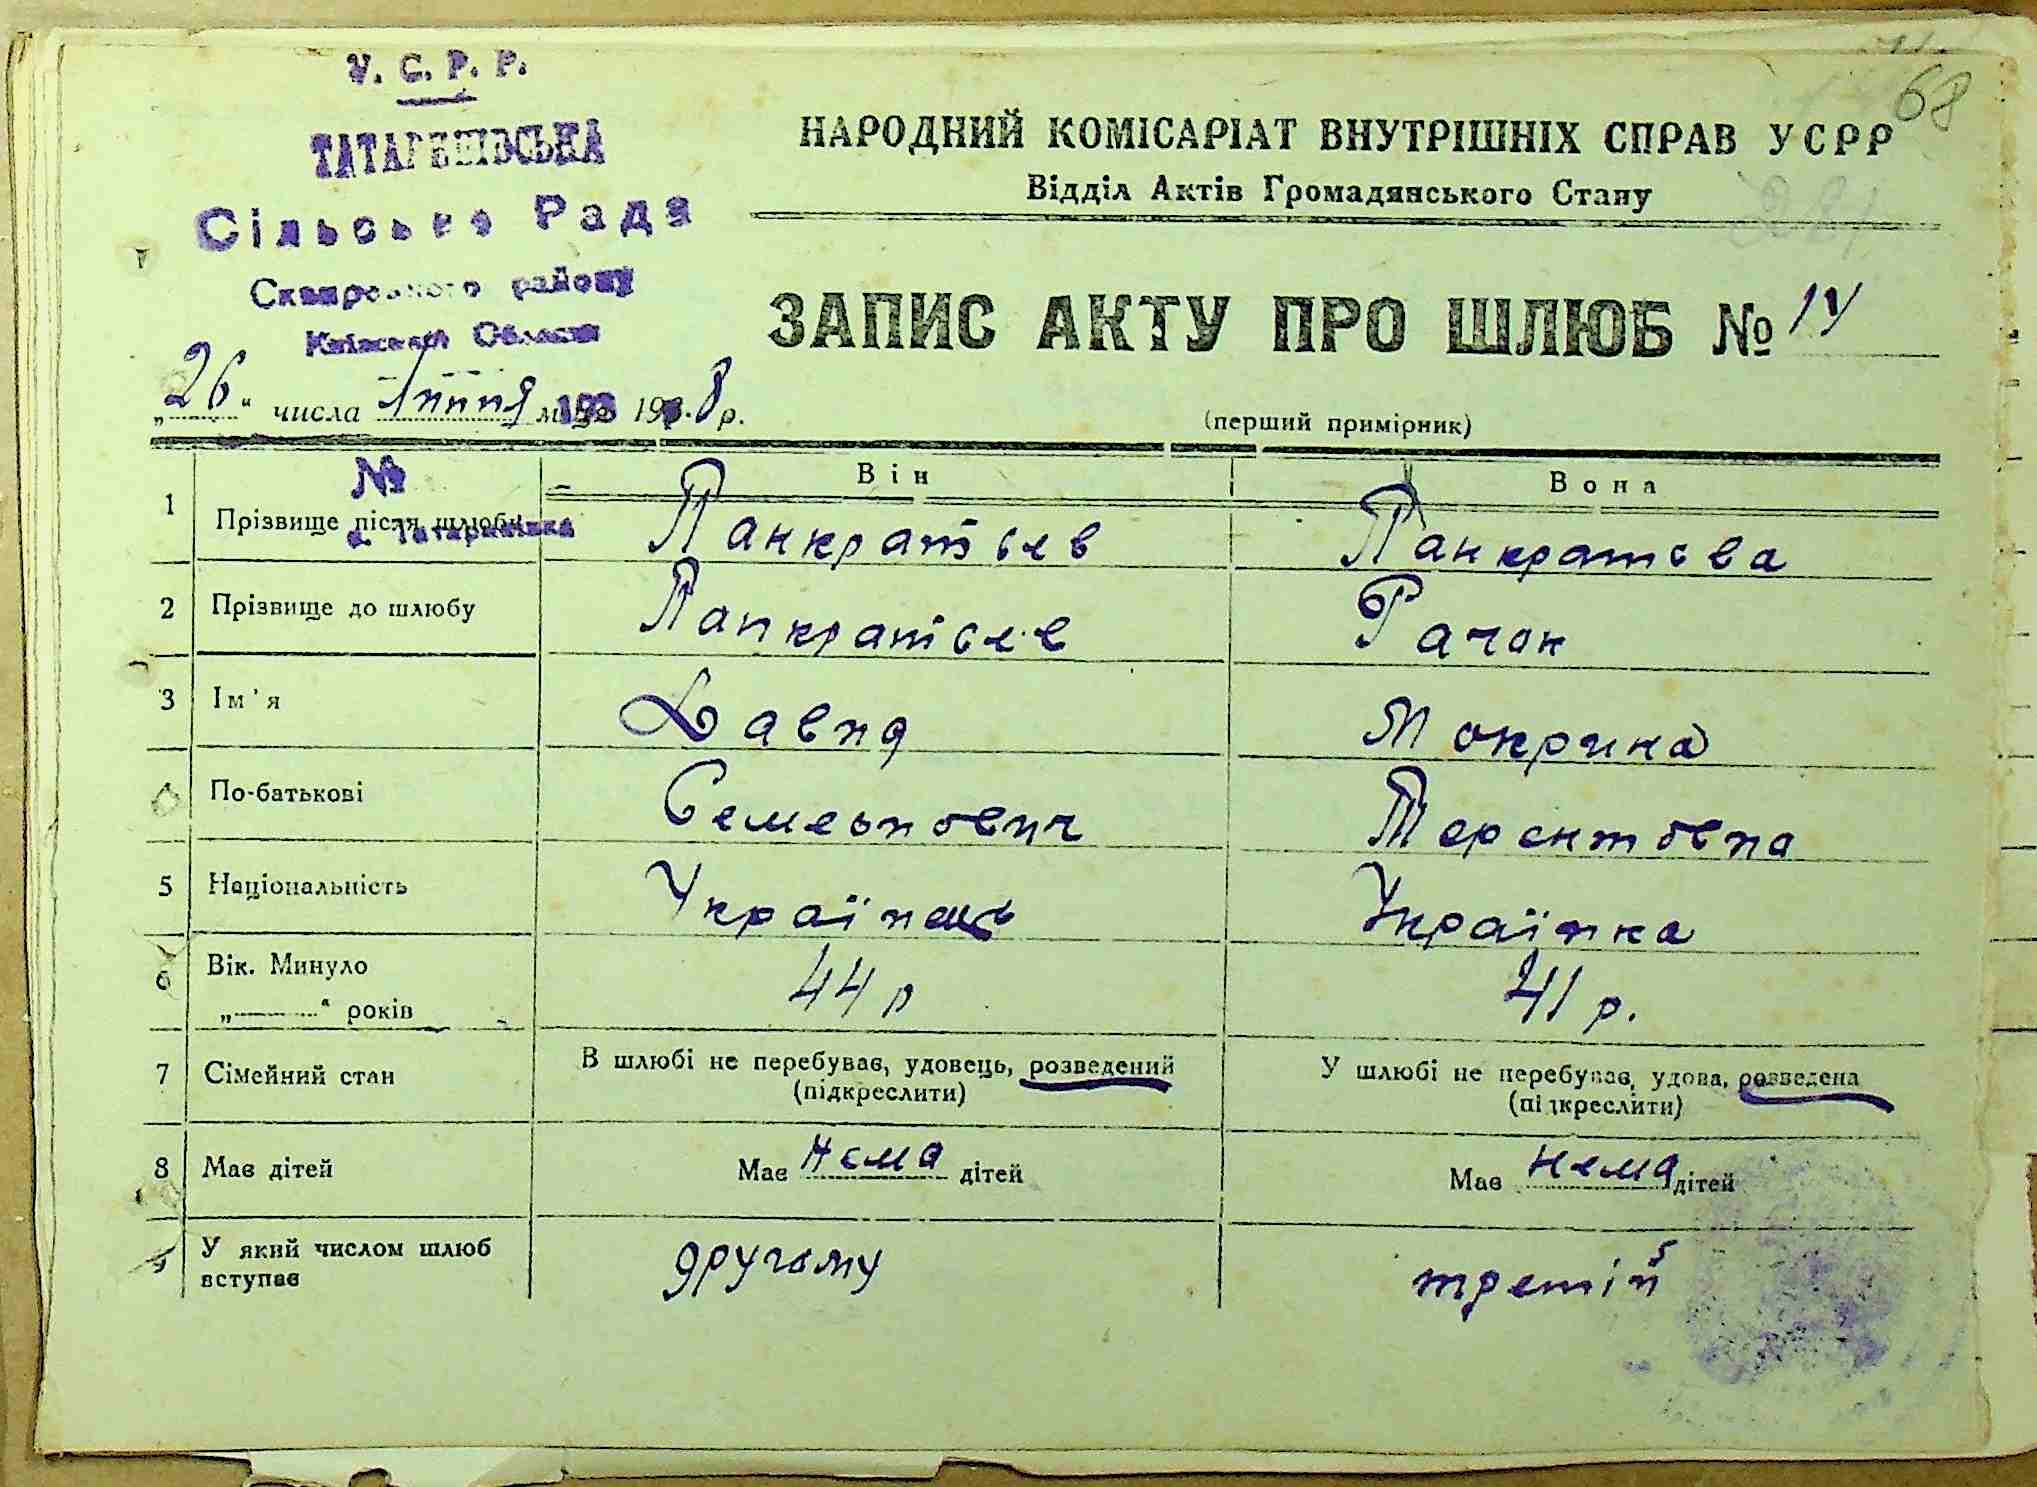 У. С. Р. Р.
ТАТАРЕШІВСЬКА
Сільська Рада
Сквирського району
Київської Области
68
НАРОДНИЙ КОМІСАРІАТ ВНУТРІШНІХ СПРАВ УСРР
Відділ Актів Громадянського Стану
ЗАПИС АКТУ ПРО ШЛЮБ № 14
„26“ числа Липня м-ця 193 8 р.
(перший примірник)
№
Він Вона
1 Прізвище після шлюбу Панкратьєв Панкратєва
2 Прізвище до шлюбу Панкратьєв Рачок
3 Ім'я Давид Мокрина
4 По-батькові Семенович Терентовна
5 Національність Українець Українка
6 Вік. Минуло 44 р 41 р.
„ “ років
7 Сімейний стан В шлюбі не перебував, удовець, розведений У шлюбі не перебував, удова, розведена
(підкреслити) (підкреслити)
8 Має дітей Має нема дітей Має нема дітей
9 У який числом шлюб вступає другому третій